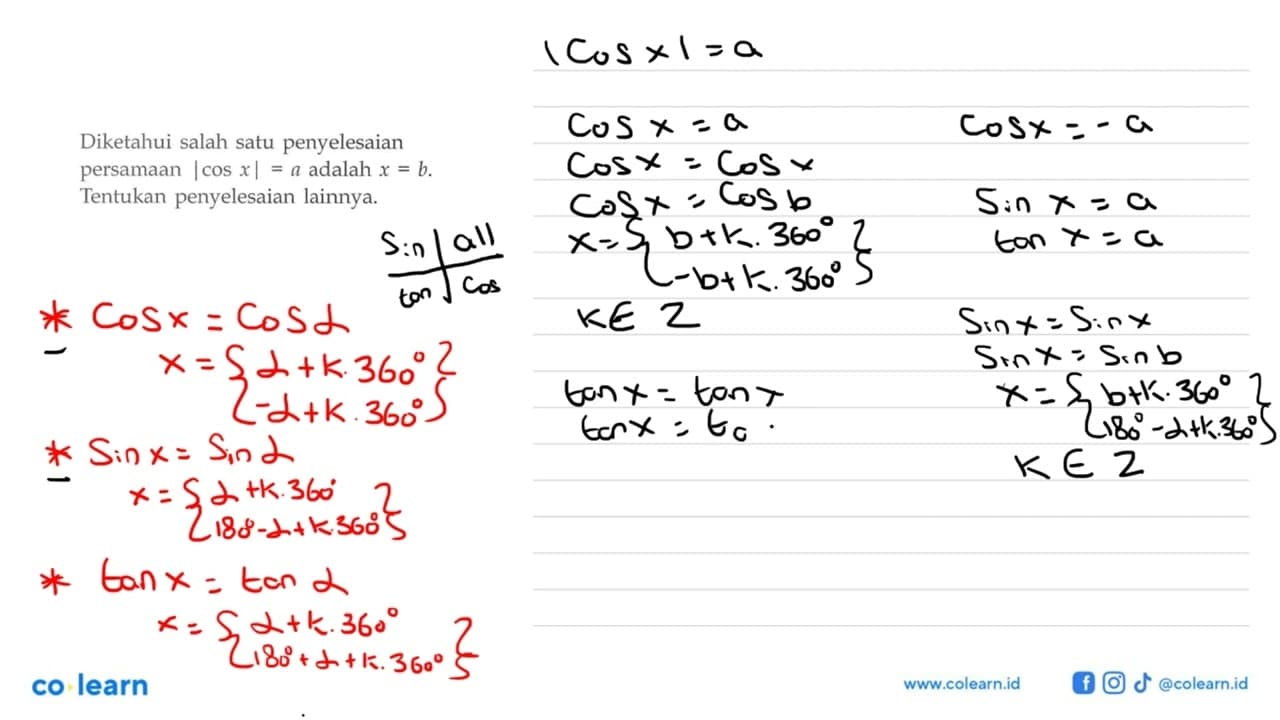 Diketahui salah satu penyelesaian
persamaan |cos x| = a adalah x = b.
Tentukan penyelesaian lainnya.
Sin | all
tan | Cos
* Cos x = Cos α
x = { α + k. 360°
-α + k. 360° }
* Sin x = Sin α
x = { α + k. 360°
180° - α + k. 360° }
* tan x = tan α
x = { α + k. 360°
180° + α + k. 360° }
|Cos x| = a
Cos x = a
Cos x = Cos x
Cos x = Cos b
x = { b + k. 360°
-b + k. 360° }
K ∈ Z
tan x = tan x
tan x = ta
Cos x = - a
Sin x = a
tan x = a
Sin x = Sin x
Sin x = Sin b
x = { b + k. 360°
180° - α + k. 360° }
K ∈ Z
co learn
www.colearn.id
@colearn.id